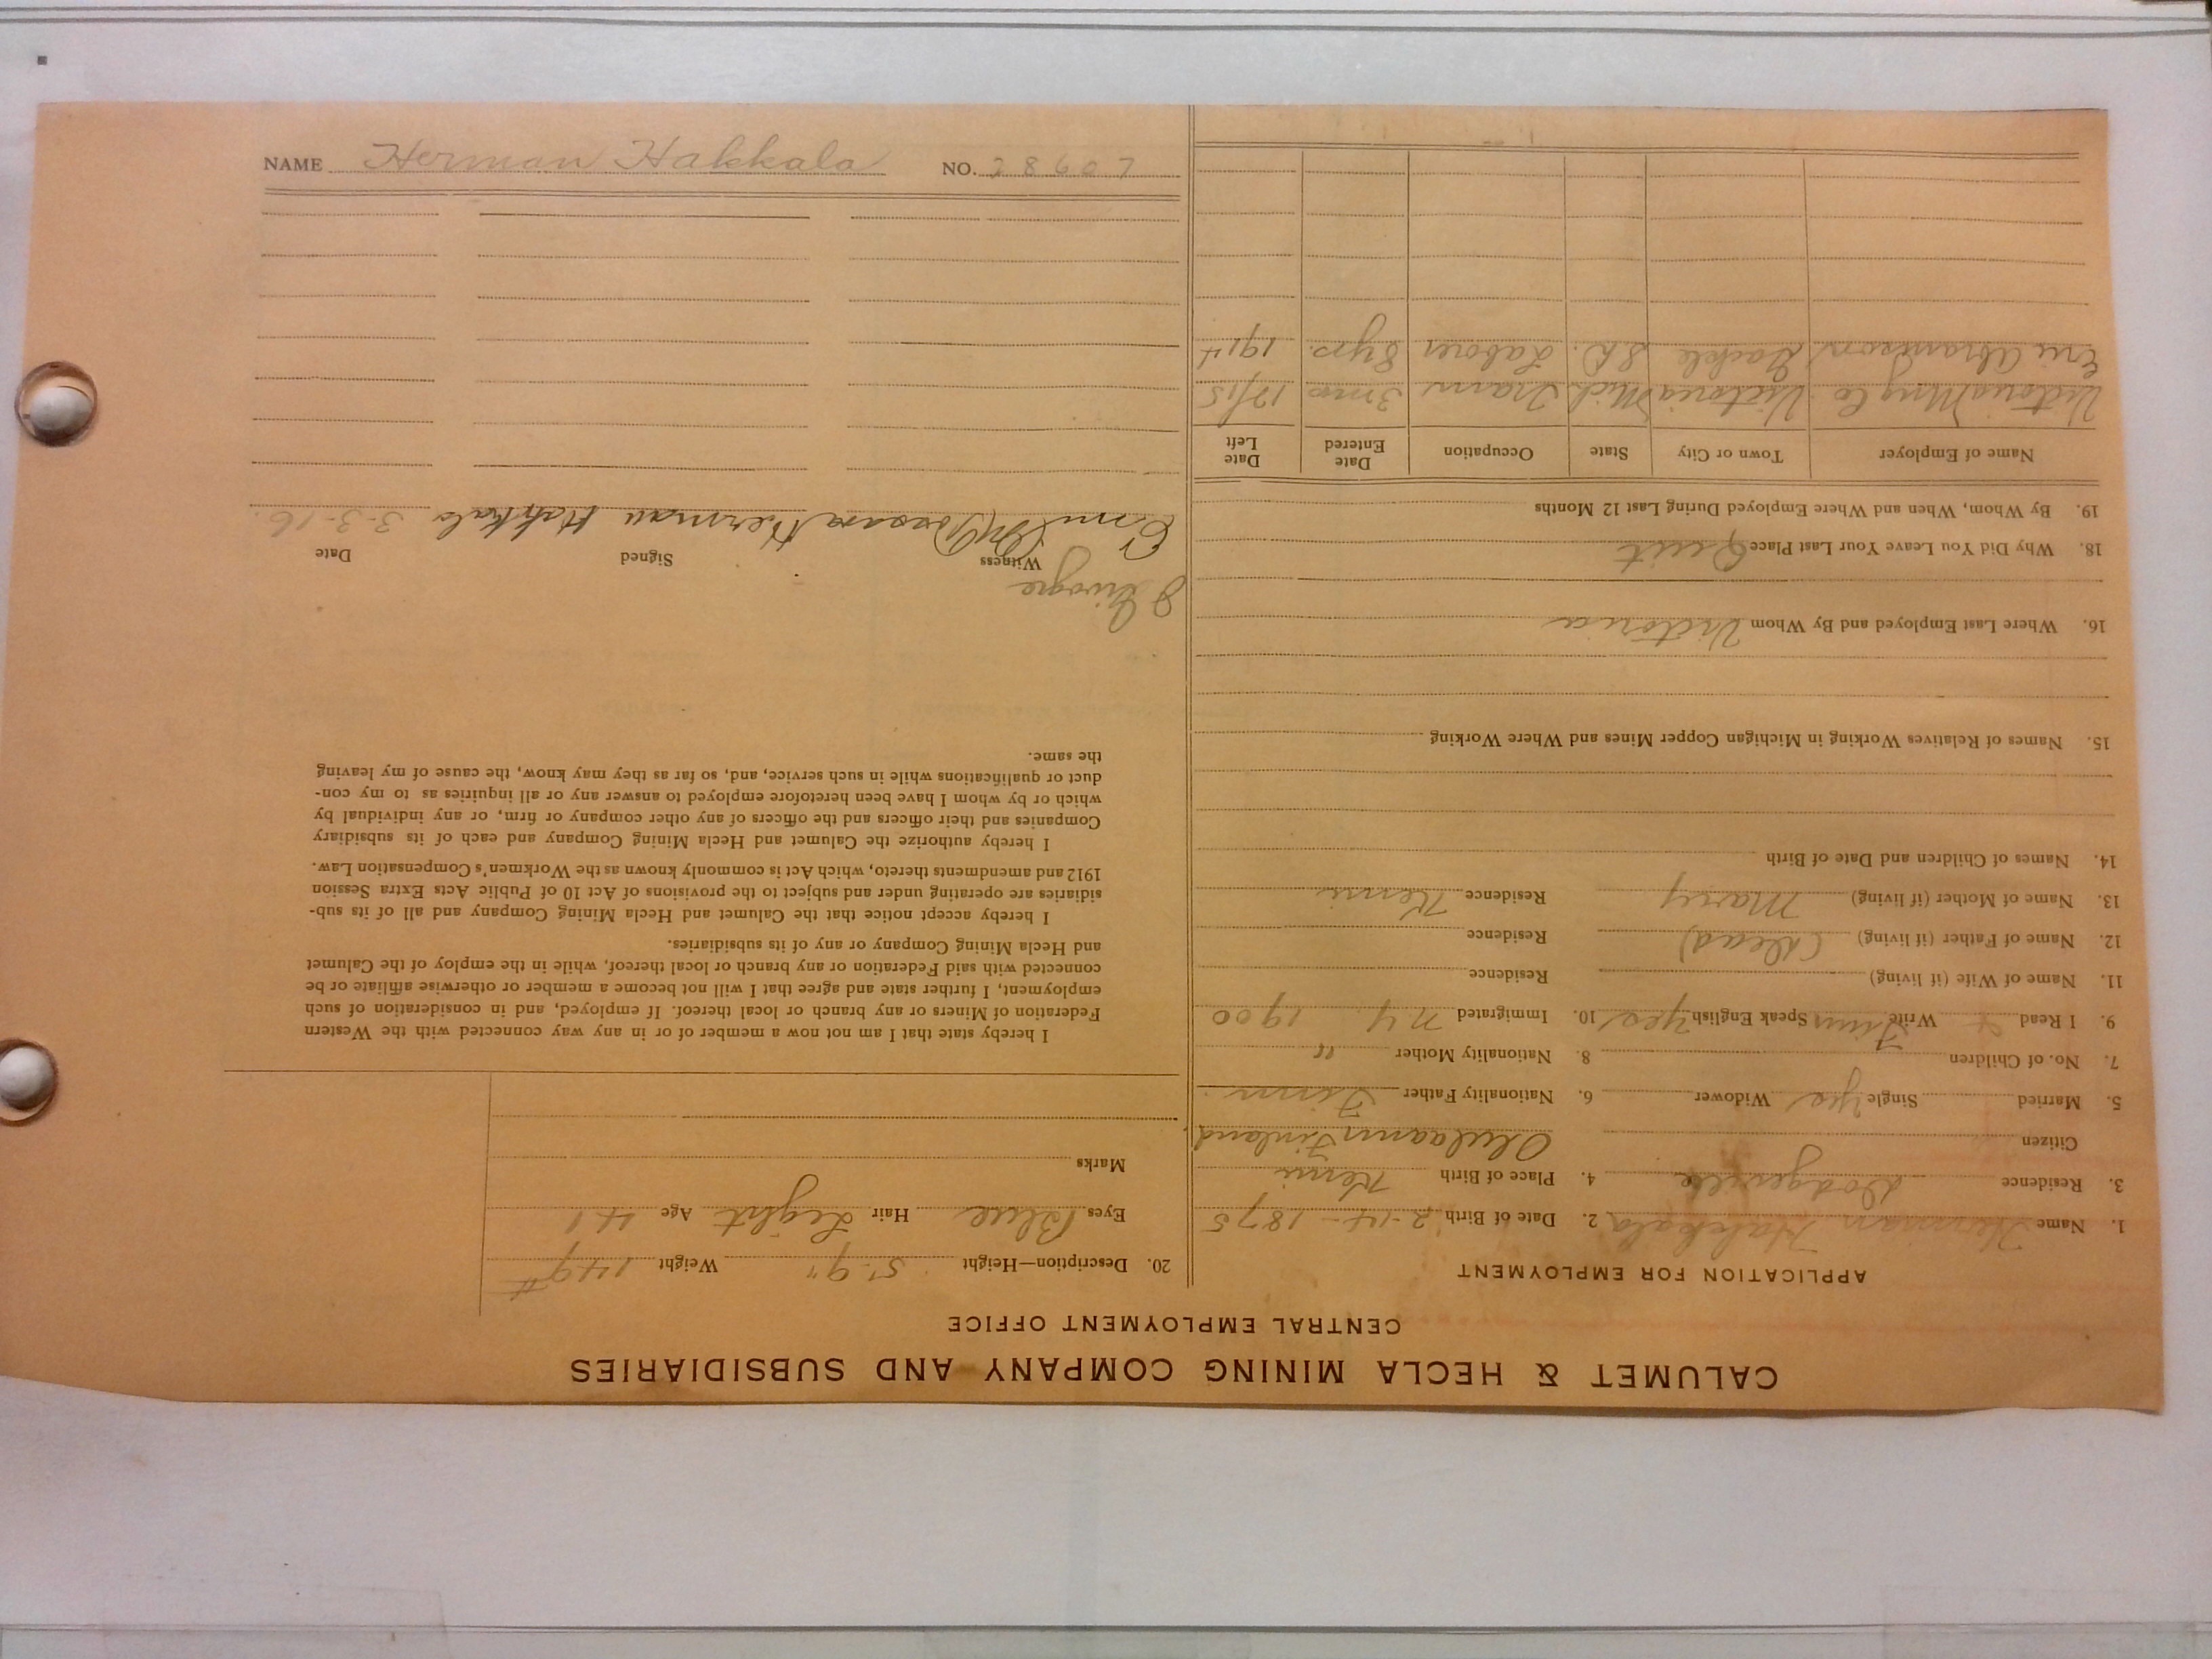 CALUMET & HECLA MINING COMPANY AND SUBSIDIARIES
CENTRAL EMPLOYMENT OFFICE
APPLICATION FOR EMPLOYMENT
1. Name Herman Hakkala 2. Date of Birth 2-14-1875
3. Residence Dodgeville 4. Place of Birth Kemi
Citizen Oulaann Finland
5. Married Single Yes Widower 6. Nationality Father Finn
7. No. of Children 8. Nationality Mother "
9. I Read Write Finn Speak English Yes 10. Immigrated N.Y. 1900
11. Name of Wife (if living) Residence
12. Name of Father (if living) (Dead) Residence
13. Name of Mother (if living) Mary Residence Kemi
14. Names of Children and Date of Birth
15. Names of Relatives Working in Michigan Copper Mines and Where Working
16. Where Last Employed and By Whom Victoria
18. Why Did You Leave Your Last Place Quit
19. By Whom, When and Where Employed During Last 12 Months
Name of Employer Town or City State Occupation Date Entered Date Left
Victoria Mng Co. Victoria Mich Tram 3 mos 12/15
Eric Abramson S.D. Laborer 8 yrs. 1914
20. Description—Height 5'-9" Weight 149#
Eyes Blue Hair Light Age 41
Marks
I hereby state that I am not now a member of or in any way connected with the Western
Federation of Miners or any branch or local thereof. If employed, and in consideration of such
employment, I further state and agree that I will not become a member or otherwise affiliate or be
connected with said Federation or any branch or local thereof, while in the employ of the Calumet
and Hecla Mining Company or any of its subsidiaries.
I hereby accept notice that the Calumet and Hecla Mining Company and all of its sub-
sidiaries are operating under and subject to the provisions of Act 10 of Public Acts Extra Session
1912 and amendments thereto, which Act is commonly known as the Workmen's Compensation Law.
I hereby authorize the Calumet and Hecla Mining Company and each of its subsidiary
Companies and their officers and the officers of any other company or firm, or any individual by
which or by whom I have been heretofore employed to answer any or all inquiries as to my con-
duct or qualifications while in such service, and, so far as they may know, the cause of my leaving
the same.
Witness Signed Date
Emil Herman Hakkala 3-3-16.
NAME Herman Hakkala NO. 28607